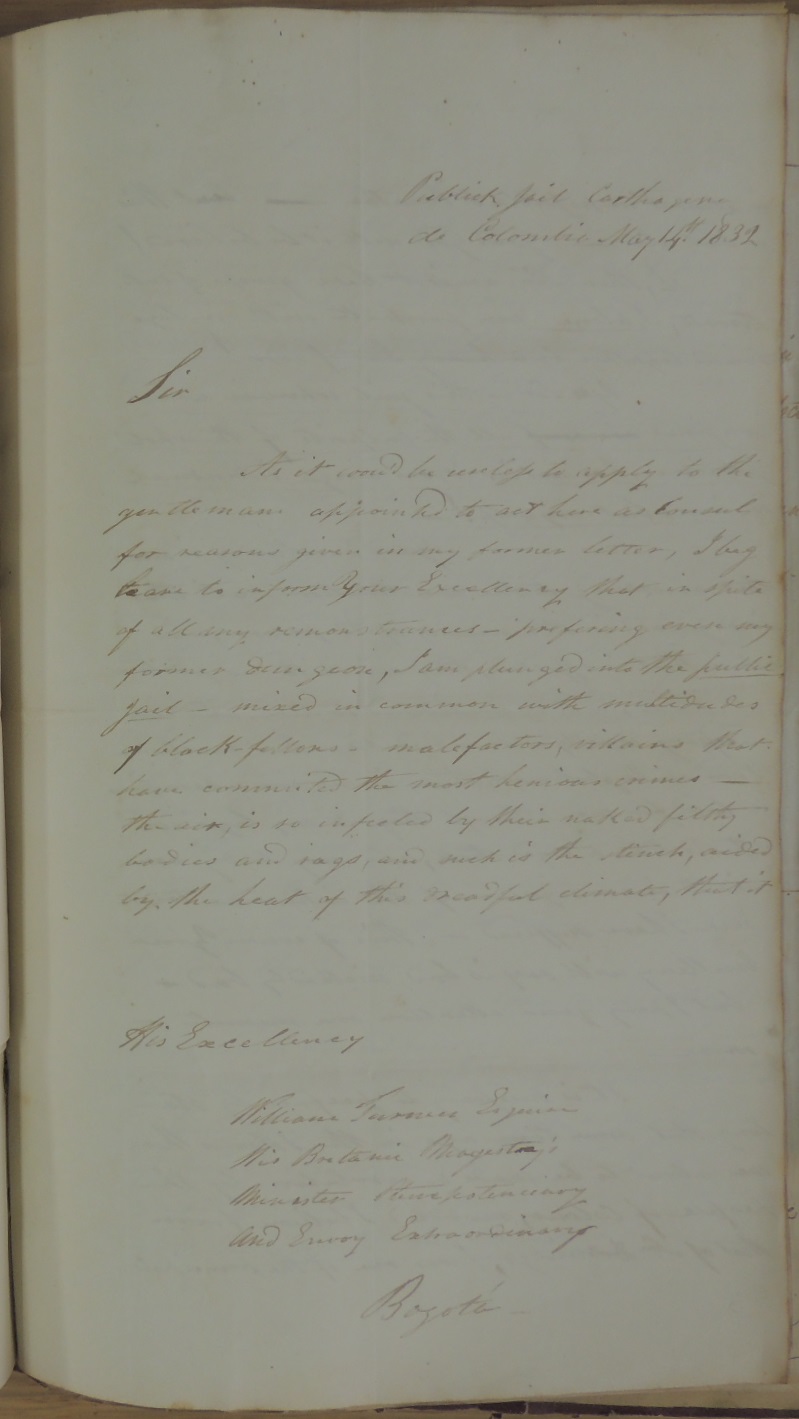 Publick Jail Carthagena
de Colombia May 14th 1832
Sir
As it would be useless to apply to the
gentlemans appointed to act here as Consul
for reasons given in my former letter, I beg
leave to inform Your Excellency that in spite
of all my remonstrances – prefering even my
former dungeon, I am plunged into the public
jail – mixed in common with multidudes
of black-fellers – malefactors, villains that
have commited the most henious crimes –
the air, is so infected by their naked filthy
bodies and rags, and such is the stench, aided
by the heat of this dreadful climate, that it
His Excellency
William Turner Esquire
His Britanic Magesty's
Minister Plenepotenciary
And Envoy Extraordinary
Bogotá –